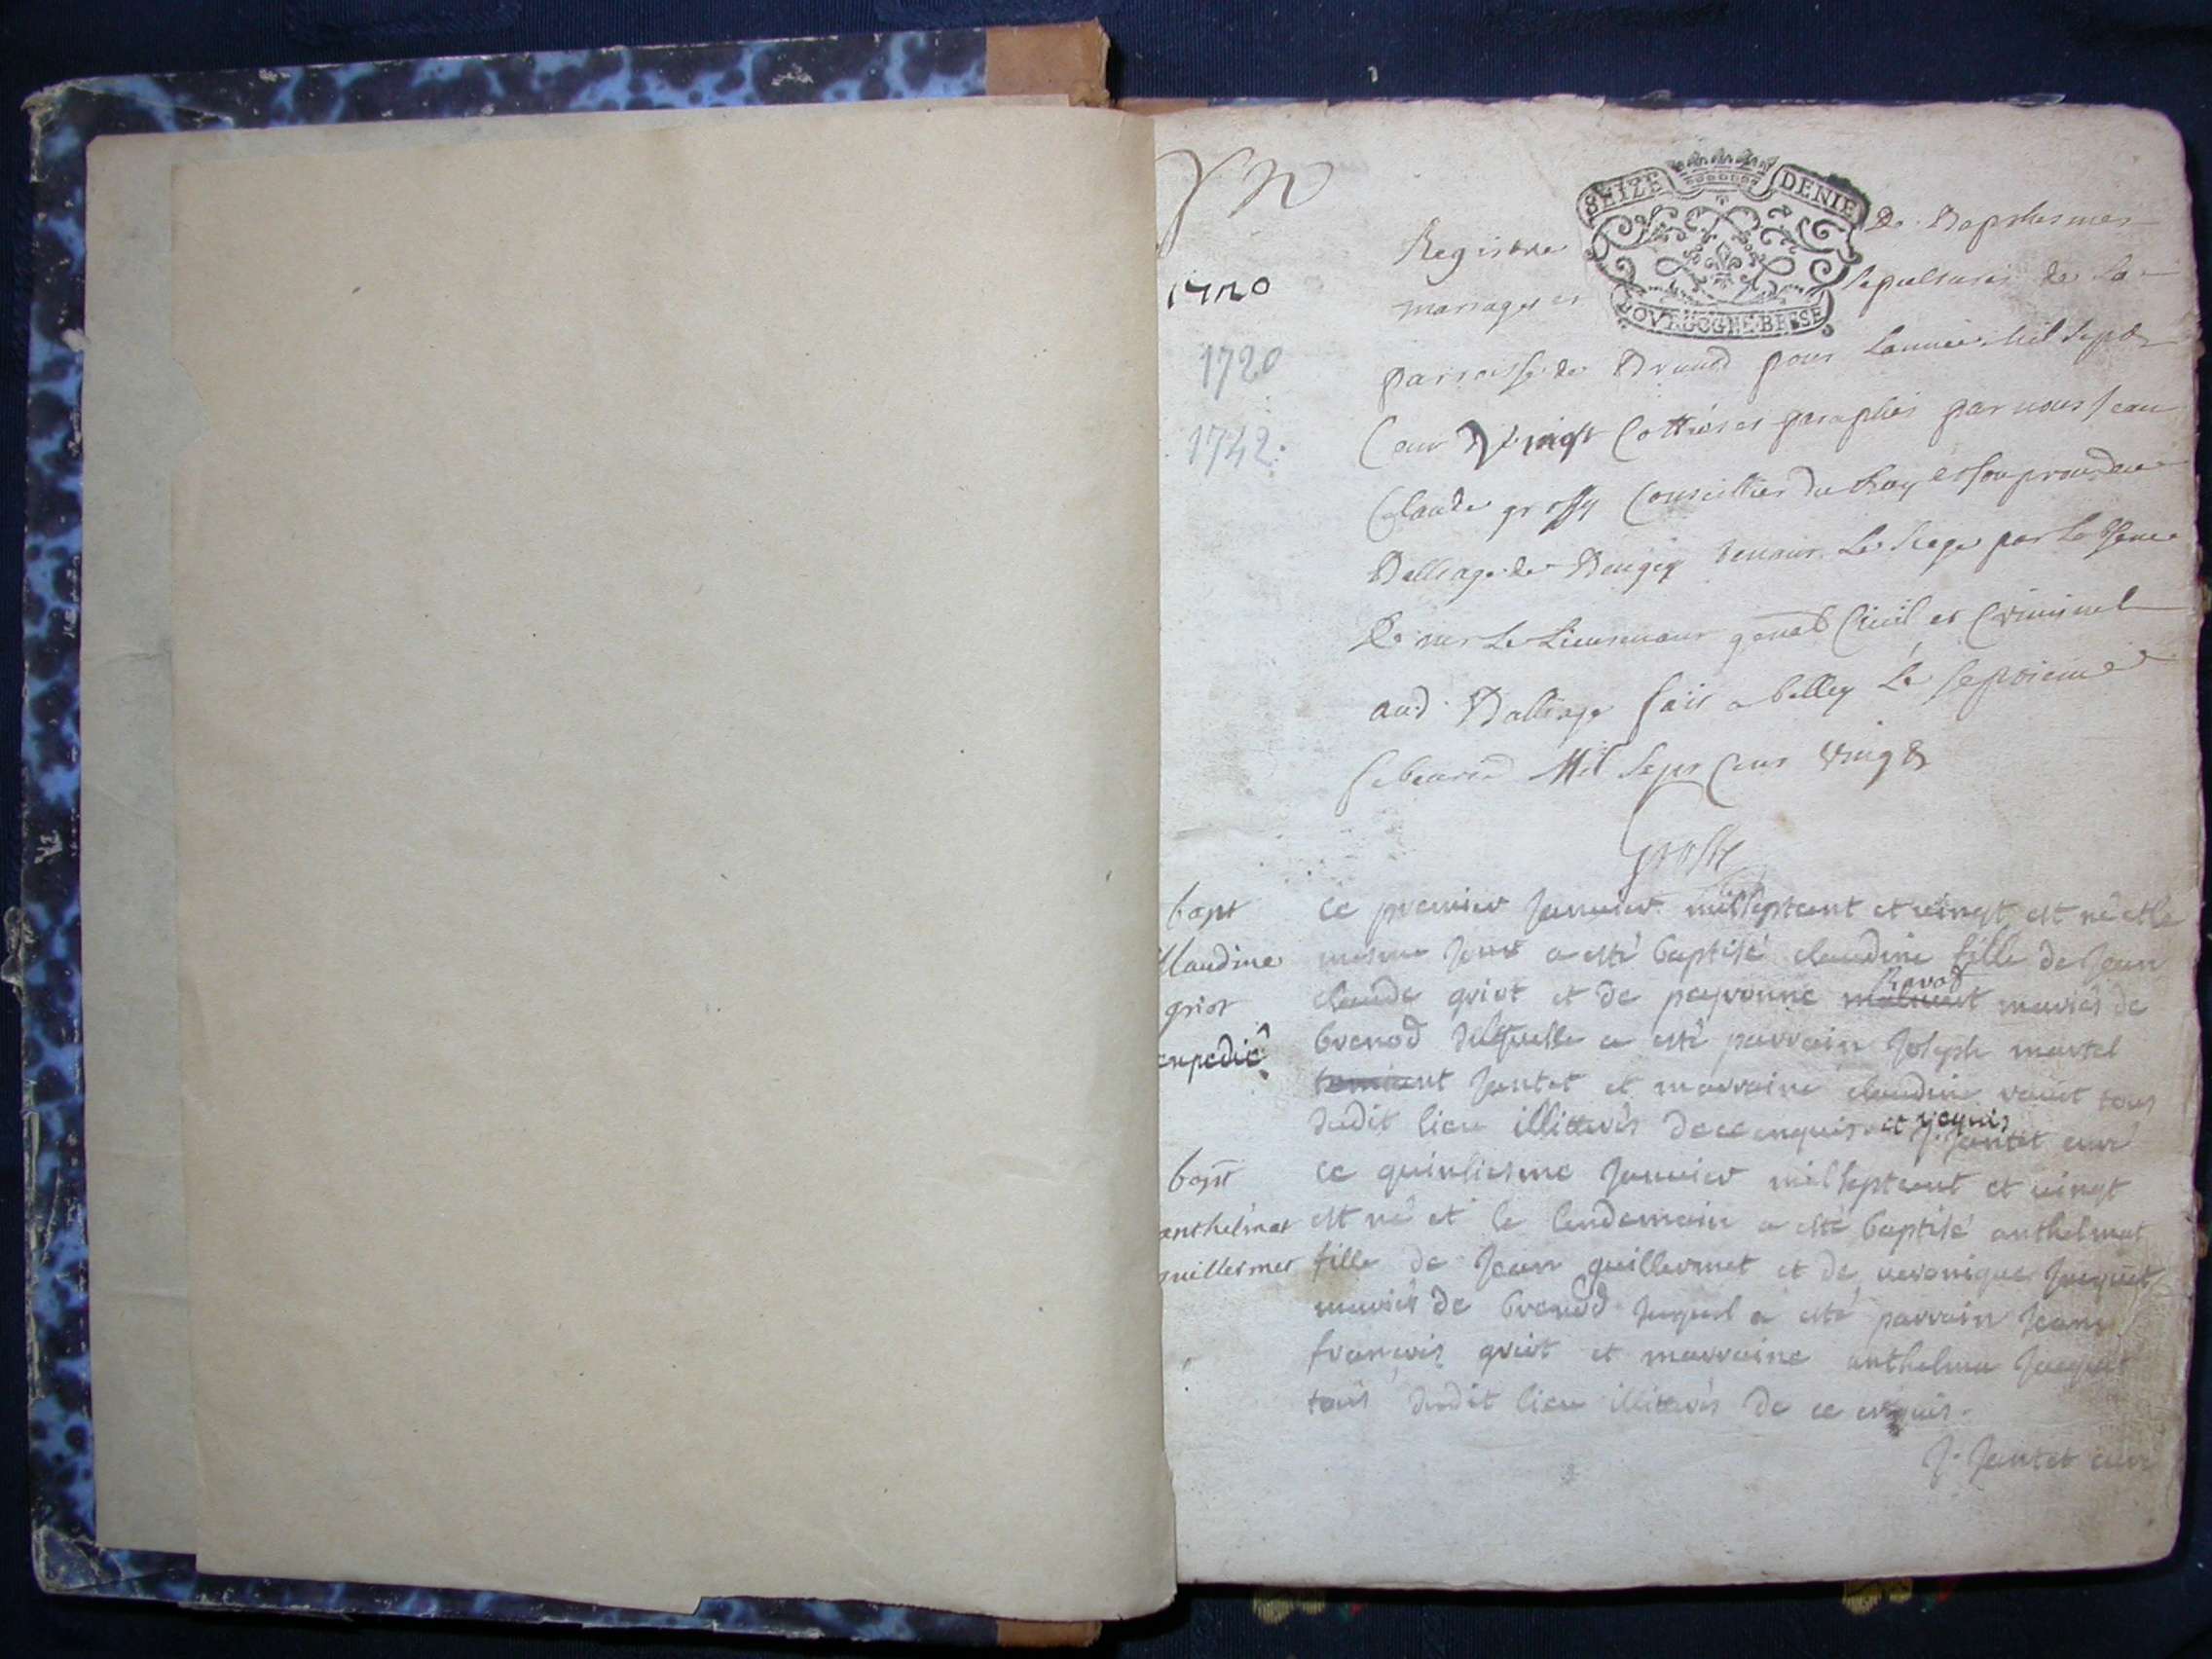 1720
1720
1742.
SEIZE DENIE
BOVRGOGNE BRESSE
Registre De Bapthesmes
mariages et sepultures de La
parroisse de Brenod pour Lannée Mil Sept
Cent Vingt Cottées et paraphés par nous Jean
Claude grosfy Conseillier du Roy
Balliage de Beugey tenant Le Siege par
Le Lieutenant genal Civil et Criminel
aud. Balliage fait a belley Le septieme
febvrier Mil Sept Cent Vingt
bapt
Claudine
griot
expedié
ce premier Janvier milseptcent et vingt est né et le
mesme Jour a esté baptisé claudine fille de Jean
claude griot et de peyronne Ravod mariés de
brenod de laquelle a esté parrain Joseph martel
Jantet et marraine claudine tous
dudit lieu illitterés de ce enquis et requis
J. Jantet curé
bapt
anthelmat
guillermet
ce quinsiesme Janvier milseptcent et vingt
est né et le lendemain a esté baptisé anthelmat
fille de Jean guillermet et de veronique Jacquet
mariés de brenod duquel a esté parrain Jean
françois griot et marraine anthelma Jacquet
tous dudit lieu illitterés de ce enquis.
J. Jantet curé